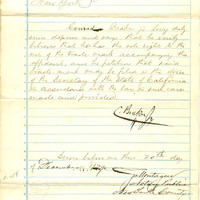 New York
Conrad Becker Jr being duly
sworn deposes and says that he verily
believes that he has the sole right to the
use of the trade mark accompanying the
affidavit, and he petitions that said
trade mark may be filed in the office
of the Secretary of the State of California
in accordance with the law in such case
made and provided
C. Becker Jr
Sworn before me this 20th day
of December
Notary Public
New York County